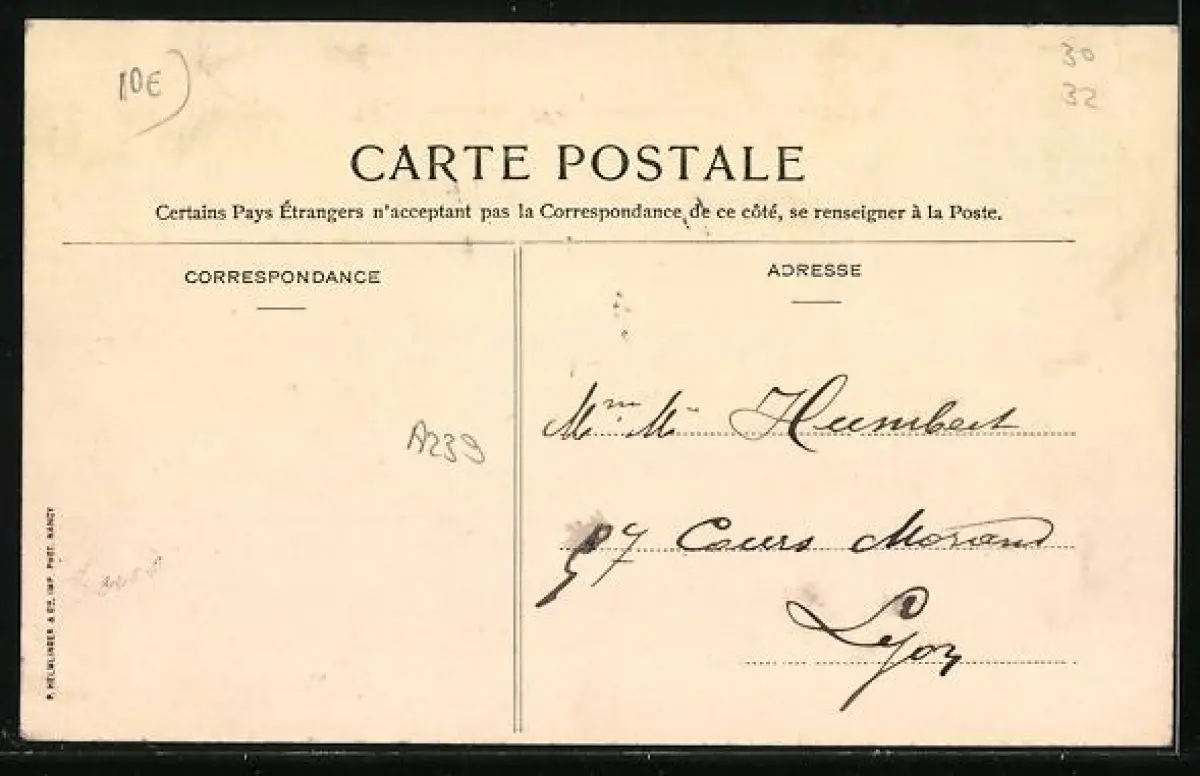 10€
30
32
CARTE POSTALE
Certains Pays Étrangers n'acceptant pas la Correspondance de ce côté, se renseigner à la Poste.
CORRESPONDANCE
ADRESSE
Mme M Humbert
A239
57 Cours Morand
Lyon
P. HELMLINGER & CO. IMP. PHOT. NANCY